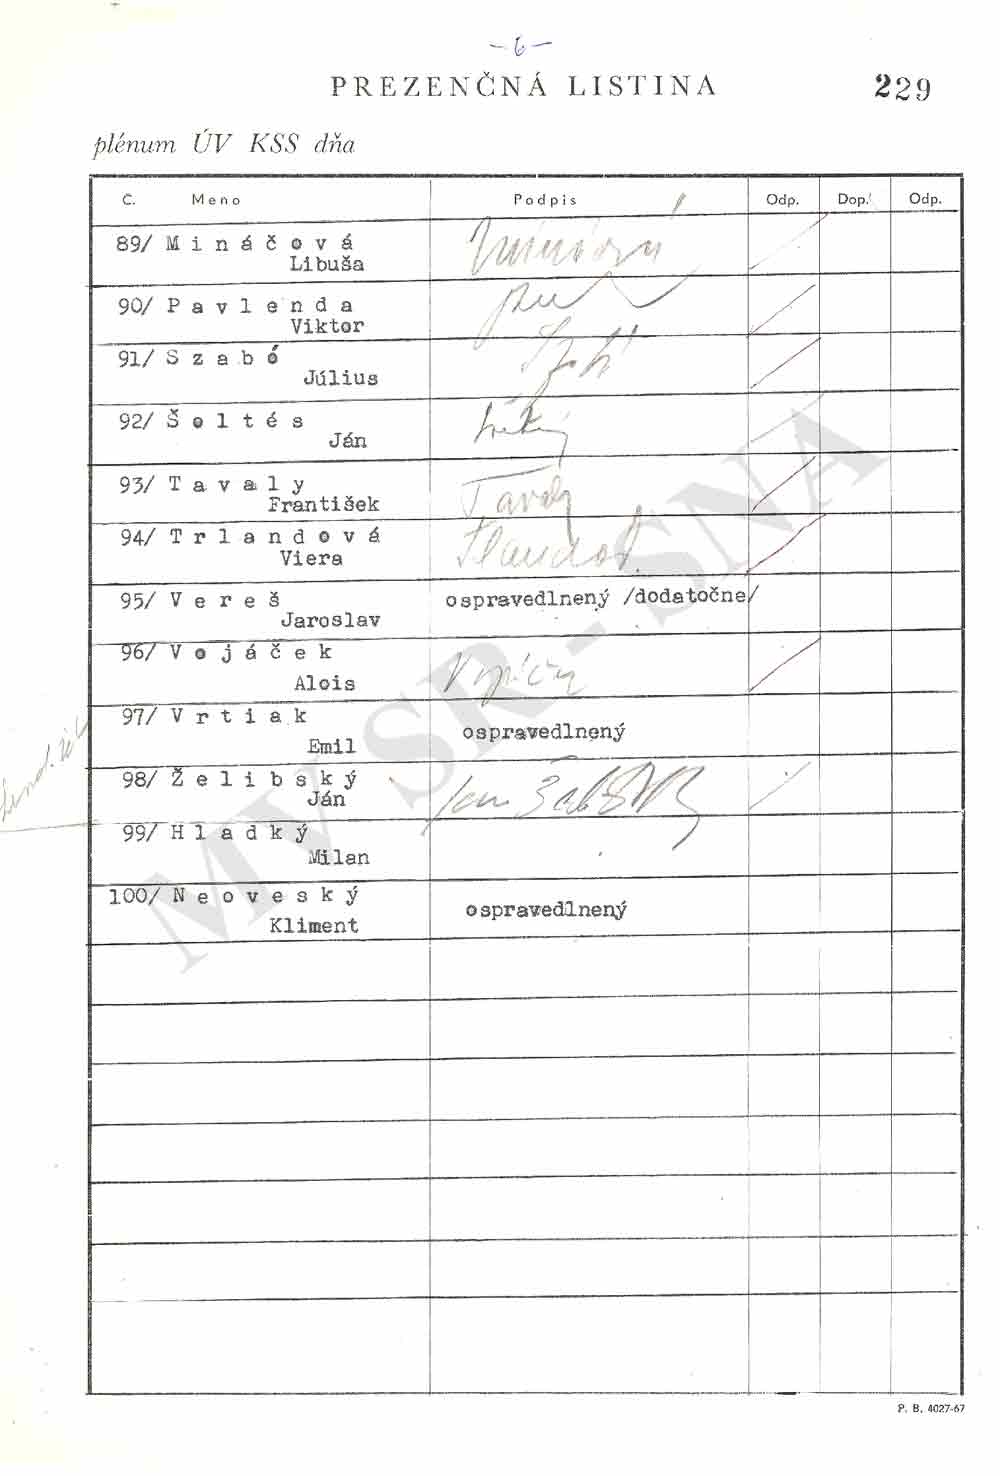 - 6 -
PREZENČNÁ LISTINA
229
plénum ÚV KSS dňa
Č. Meno Podpis Odp. Dop. Odp.
89/ Mináčová
Libuša
90/ Pavlenda
Viktor
91/ Szabó
Július
92/ Šoltés
Ján
93/ Tavaly
František
94/ Trlandová
Viera
95/ Vereš ospravedlnený /dodatočne/
Jaroslav
96/ Vojáček
Alois
97/ Vrtiak
ospravedlnený
Emil
98/ Želibský
Ján
99/ Hladký
Milan
100/ Neoveský
ospravedlnený
Kliment
MV SR - SNA
P. B. 4027-67